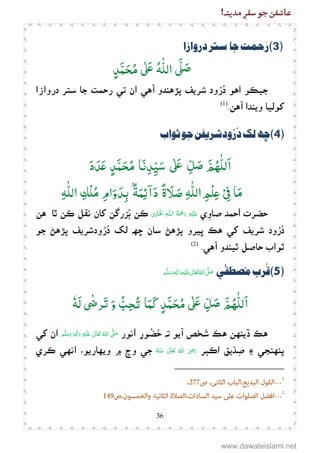 عاشقن جو سفرِ مدينه!
(3)رَحمت جا ستر دروازا
صَلَّى اللّٰهُ عَلٰى مُحَمَّدٍ
جيڪو اهو دُرُود شريف پڙهندو آهي ان تي رحمت جا ستر دروازا
کوليا ويندا آهن.(1)
(4)ڇهه لک دُرُودشريفن جو ثواب
اَللّٰهُمَّ صَلِّ عَلٰى سَيِّدِنَا مُحَمَّدٍ عَدَدَ
مَا فِيْ عِلْمِ اللّٰهِ صَلَاةً دَآئِمَةً ۢبِدَوَامِ مُلْكِ اللّٰهِ
حضرت اَحمد صاوِي عَلَيْهِ رَحْمَةُ اللّٰهِ الْهَادِي ڪن بُزرگن کان نقل ڪن ٿا هن
دُرُود شريف کي هڪ ڀيرو پڙهڻ سان ڇهه لک دُرُودشريف پڙهڻ جو
ثواب حاصل ٿيندو آهي.(2)
(5)قُربِ مُصطَفٰي صَلَّى اللهُ تَعَالٰى عَلَيْهِ وَاٰلِهٖ وَسَلَّم
اَللّٰهُمَّ صَلِّ عَلٰى مُحَمَّدٍ كَمَا تُحِبُّ وَ تَرْضٰى لَهٗ
هڪ ڏينهن هڪ شخص آيو ته حُضُورِ انور صَلَّى اللهُ تَعَالٰى عَلَيْهِ وَاٰلِهٖ وَسَلَّم ان کي
پنهنجي ۽ صِدّيق اڪبر رَضِيَ اللهُ تَعَالٰى عَنْهُ جي وچ ۾ ويهاريو، انهي ڪري
1…القول البديع،الباب الثانی، ص277.
2…افضل الصلوات علی سيد السادات،الصلاة الثانية والخمسون،ص149
36
www.dawateislami.net